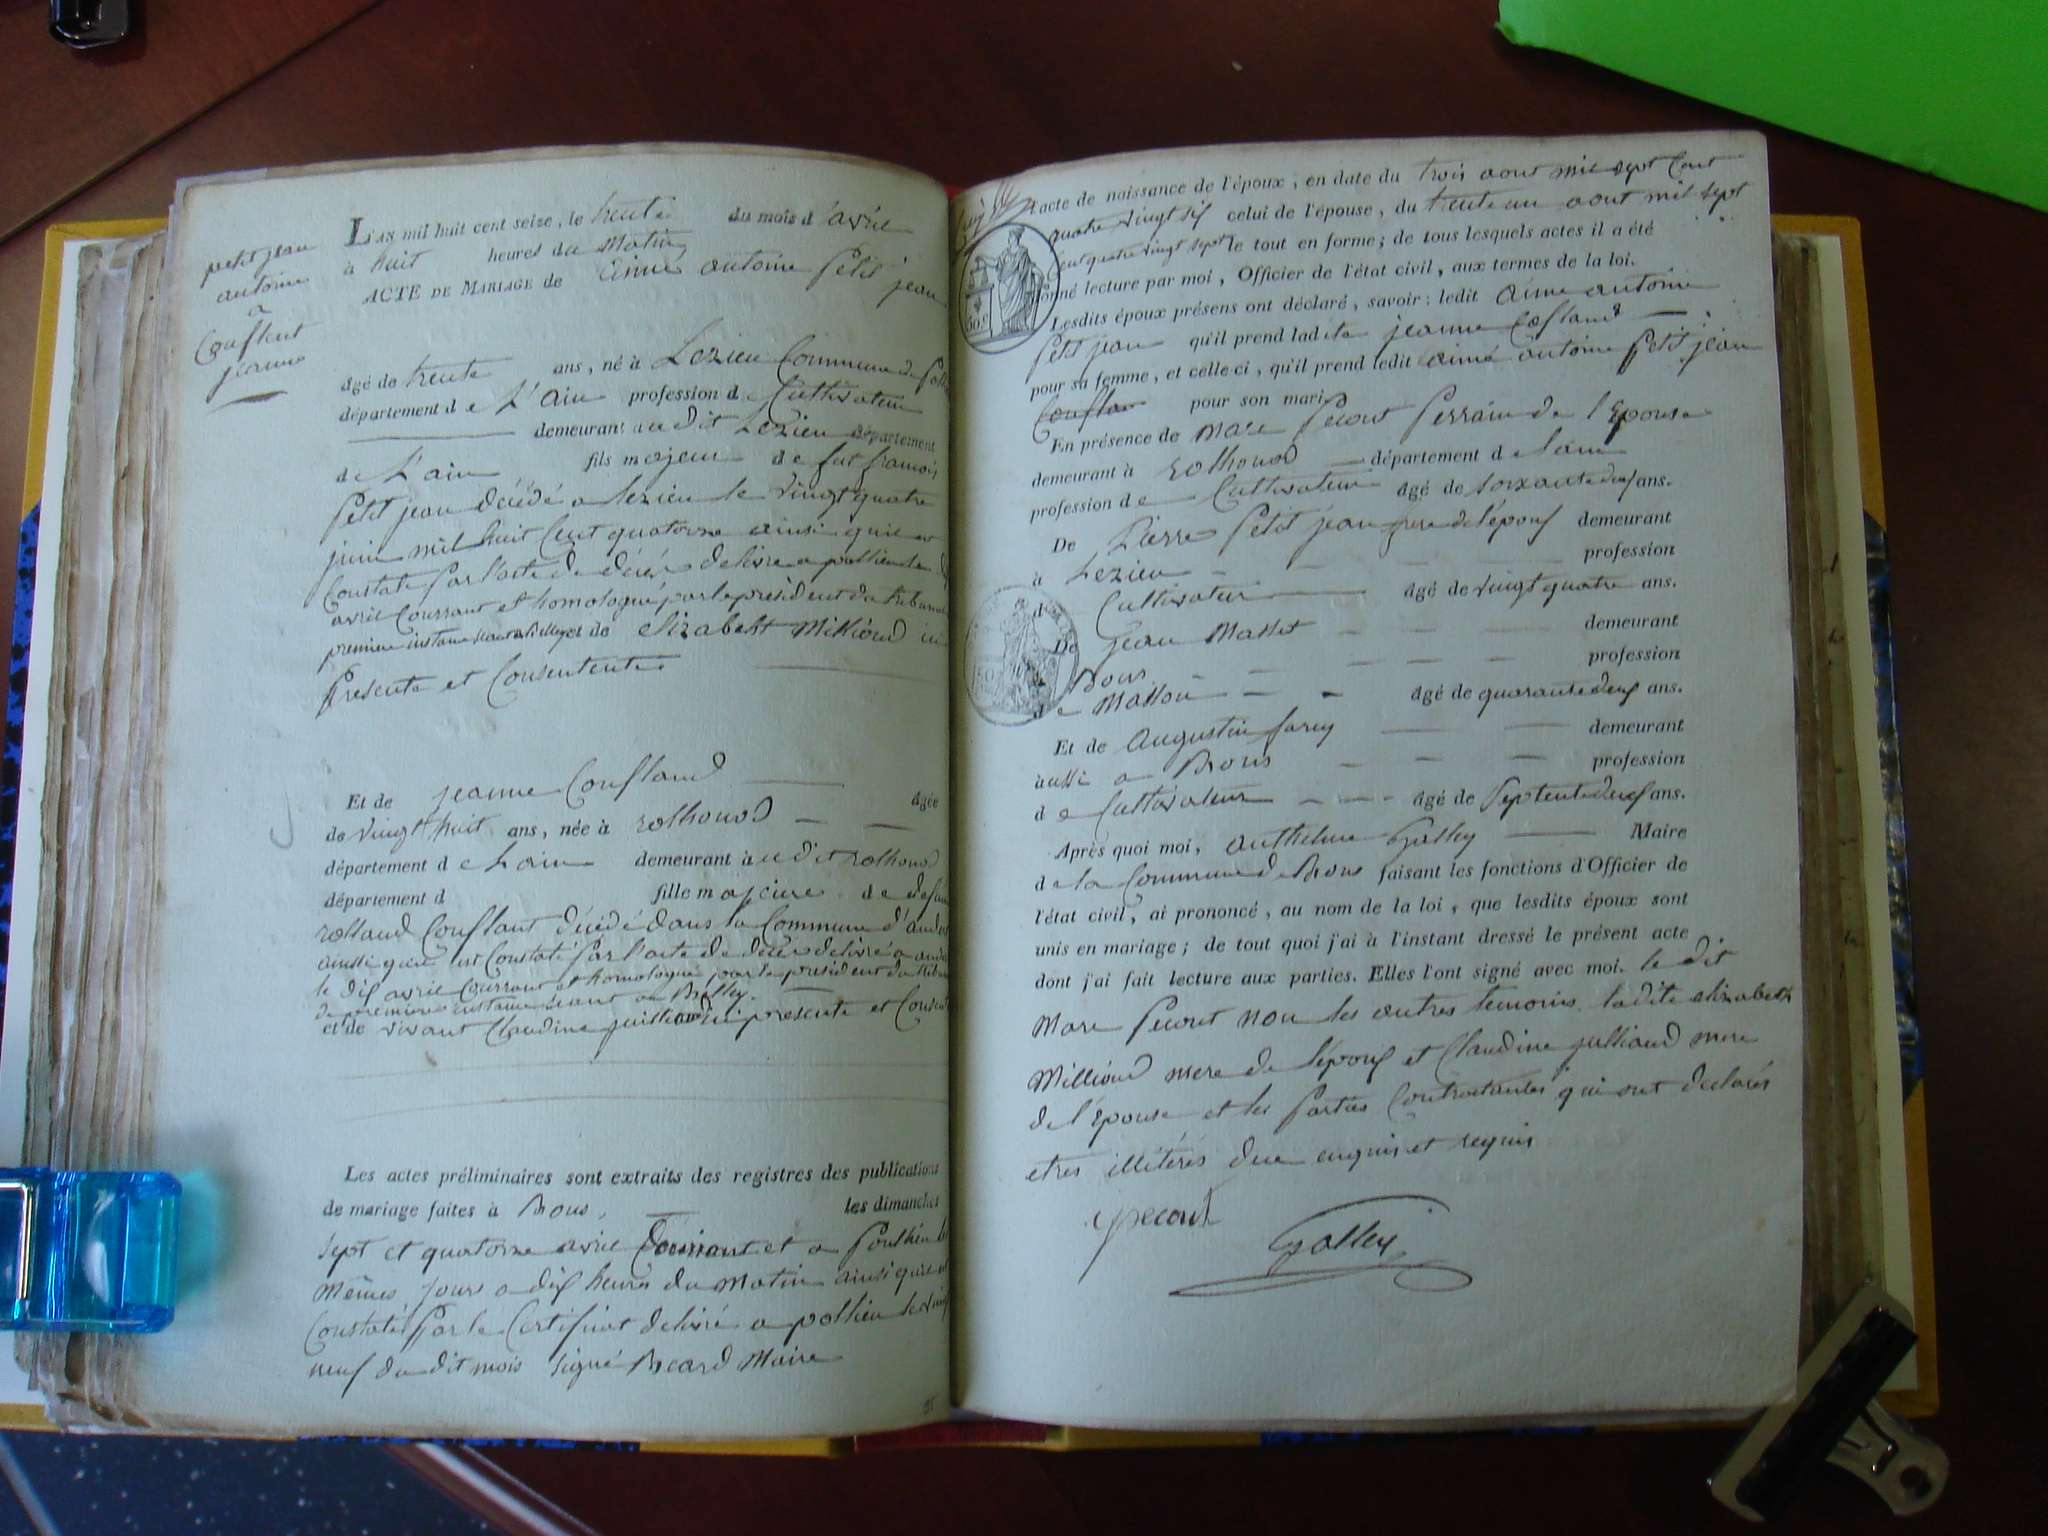 petit jean
antoine
a
Conflent
jeanne
L'AN mil huit cent seize, le trente du mois d'avril
à huit heures du Matin
ACTE DE MARIAGE de aimé antoine Petit jean
âgé de trente ans, né à Lezieu Commune de
département de L'ain profession de Cultivateur
demeurant au dit Lezieu département
de L'ain fils majeur de fut francois
Petit jean décédé a lezieu le vingt quatre
juin mil huit Cent quatorze ainsi quil est
Constaté Par l'acte de décés delivré a pollieu le
avril Courrant et homologué par le président du tribunal
premiere instance seant a Belley et de elizabeht Milliond ici
Presente et Consentente
Et de jeanne Confland âgée
de vingt huit ans, née à rothonod
département de Lain demeurant à audit rothonod
département d fille majeure de defunt
rolland Conflant décédé dans la Commune d'
ainsi quil est Constaté Par l'acte de décés delivré a
le dix avril Courrant et homologué par le president du tribunal
de premiere instance séant a Belley.
et de vivant Claudine juilliand ici presente et Consent
Les actes préliminaires sont extraits des registres des publications
de mariage faites à Brons, les dimanches
sept et quatorze avril Courrant et a Poullieu les
mêmes jours a dix heures du Matin ainsi quil est
Constaté Par le Certificat delivré a pollieu le vingt
neuf du dit mois signé Beard Maire
l'acte de naissance de l'époux, en date du trois aout mil sept Cent
quatre vingt six celui de l'épouse, du trente un aout mil sept
Cent quatre vingt sept le tout en forme; de tous lesquels actes il a été
donné lecture par moi, Officier de l'état civil, aux termes de la loi.
Lesdits époux présens ont déclaré, savoir: ledit aimé antoine
Petit jean qu'il prend ladite jeanne Confland
pour sa femme, et celle-ci, qu'il prend ledit aimé antoine Petit jean
pour son mari
En présence de Marc Pecout Perrain de l'Epouse
demeurant à rothonod département de l'ain
profession de Cultivateur âgé de soixante deux ans.
De Pierre Petit jean frere de l'époux demeurant
à Lezieu profession
d Cultivateur âgé de vingt quatre ans.
De jean Masset demeurant
Bons profession
de Masson âgé de quarante deux ans.
Et de augustin farey demeurant
aussi a Brons profession
de Cultivateur âgé de Septente deux ans.
Après quoi moi, anthelme Galley Maire
de la Commune de Brons faisant les fonctions d'Officier de
l'état civil, ai prononcé, au nom de la loi, que lesdits époux sont
unis en mariage; de tout quoi j'ai à l'instant dressé le présent acte
dont j'ai fait lecture aux parties. Elles l'ont signé avec moi. le dit
Marc Pecout non les autres temoins. ladite elizabeth
Milliond mere de l'époux et Claudine julliand mere
de l'Epouse et les Parties Contractantes qui ont declarés
etres illitérés due enquis et requis
pecout
Galley